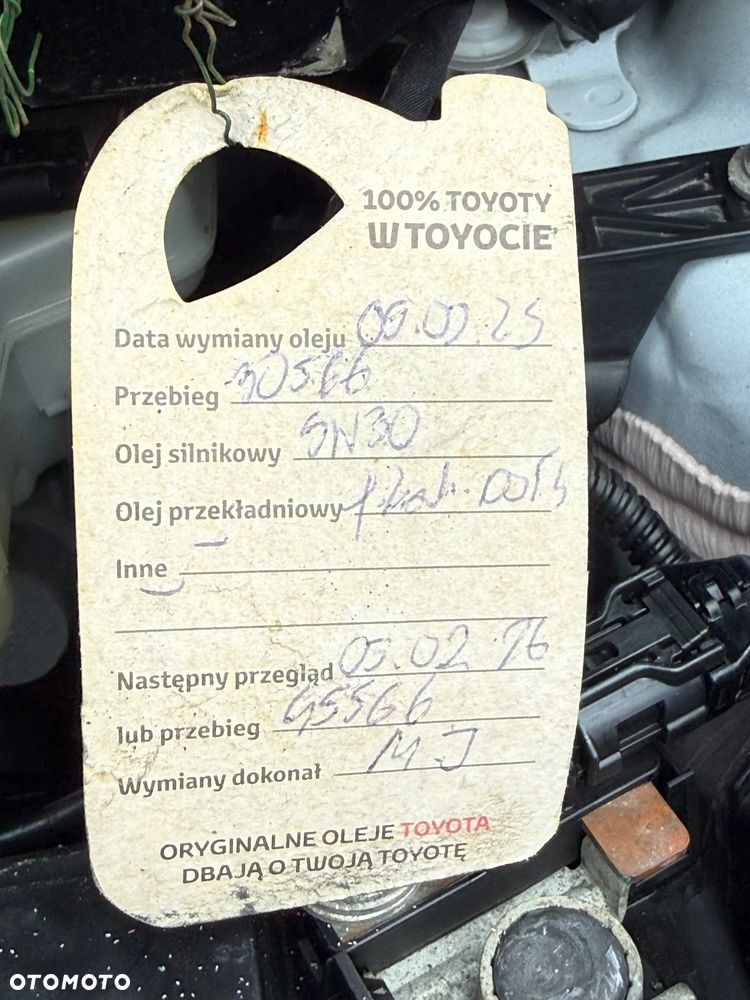 100% TOYOTY
W TOYOCIE
Data wymiany oleju
Przebieg 30566
Olej silnikowy 5W30
Olej przekładniowy
Inne
Następny przegląd 05.02.26
lub przebieg 45566
Wymiany dokonał MJ
ORYGINALNE OLEJE TOYOTA
DBAJĄ O TWOJĄ TOYOTĘ
OTOMOTO